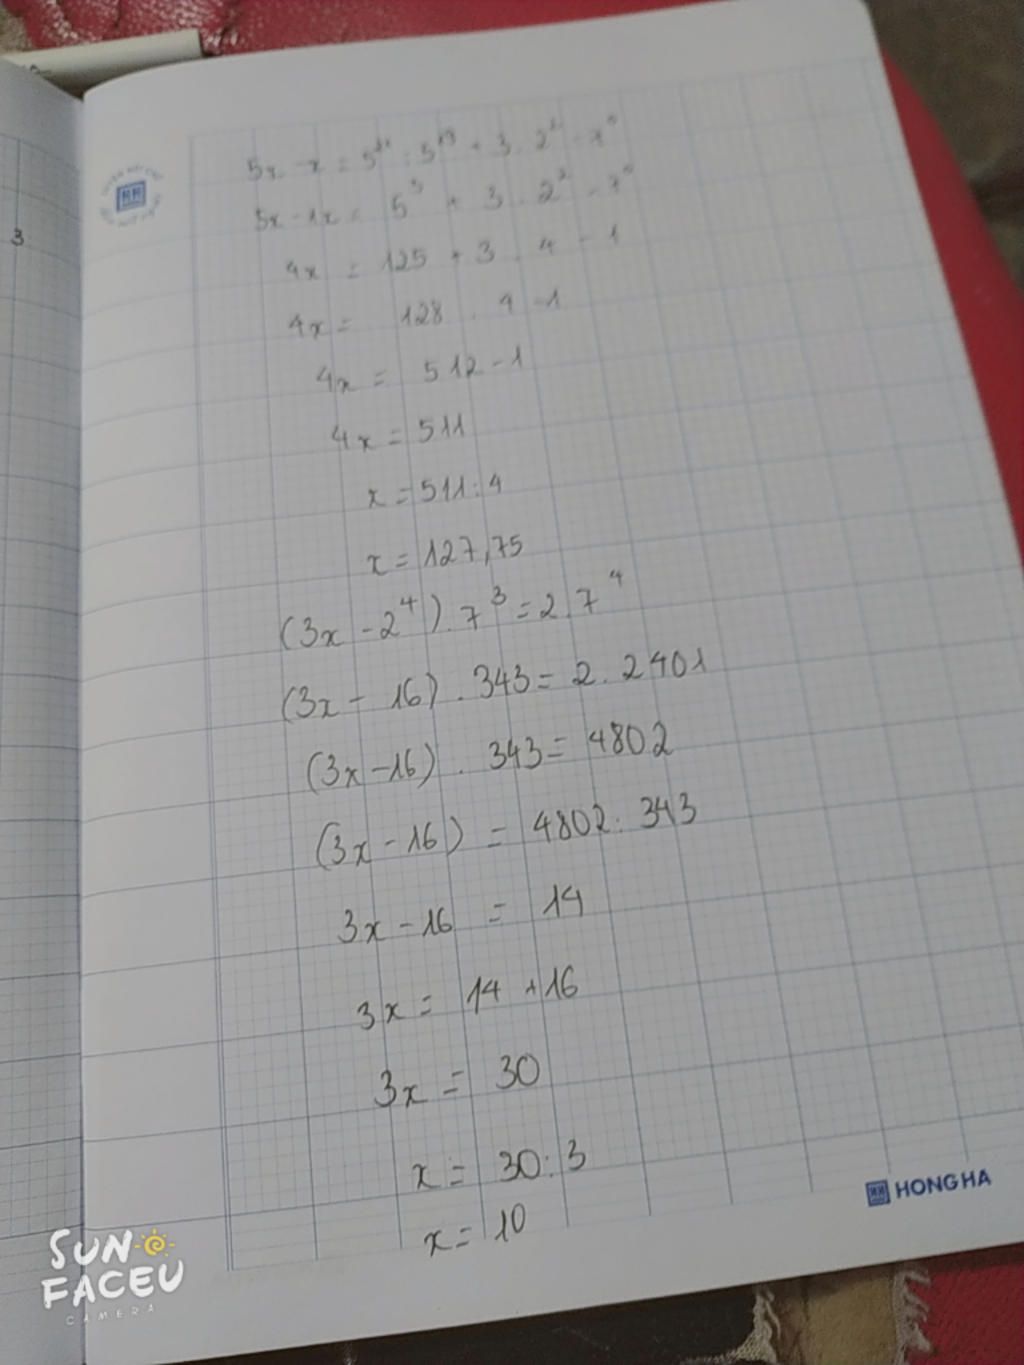 3
5x - x = 5²¹ : 5¹⁹ + 3 . 2² - 7⁰
5x - 1x = 5³ + 3 . 2² - 7⁰
4x = 125 + 3 . 4 - 1
4x = 128 . 4 - 1
4x = 512 - 1
4x = 511
x = 511 : 4
x = 127,75
(3x - 2⁴) . 7³ = 2 . 7⁴
(3x - 16) . 343 = 2 . 2401
(3x - 16) . 343 = 4802
(3x - 16) = 4802 : 343
3x - 16 = 14
3x = 14 + 16
3x = 30
x = 30 : 3
x = 10
HONG HA
SUN
FACEU
CAMERA